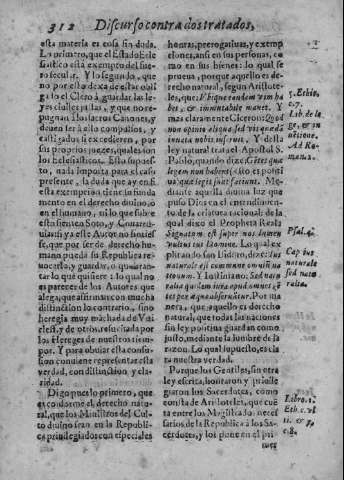 312 Discurso contra dos tratados,
esta materia es cosa sin duda.
Lo primero, que el Estado Ecle-
siastico està exempto del fue-
ro secular. Y lo segundo, que
no por esto dexa de estar obli-
gado el Clero à guardar las le-
yes ciuiles justas, y que no re-
pugnan à los sacros Canones, y
deuen ser à ello compulsos, y
castigados si excedieren, por
sus proprios juezes, quales son
los Eclesiasticos. Esto supues-
to, nada importa para el caso
presente, la duda que ay en si
esta exempcion tiene su funda
mento en el derecho diuino, ò
en el humano, ni lo que sobre
esto sienten Soto, y
y este Autor no
que, por ser de derecho hu-
mano pueda su Republica re-
uocarlo, y guardar, ò quebran-
tar lo que quisiere: lo qual no
es parecer de los Autores que
alega, que afirmar con mucha
distincion lo contrario, sino
heregia muy machada de
y de otros, resuscitada por
los Hereges de nuestros tiem-
pos. Y para obuiar esta confu-
sion conuiene representar esta
verdad, con distincion, y cla-
ridad.
Digo pues lo primero, que
es conforme al derecho natu-
ral, que los Ministros del Cul-
to diuino sean en la Republi-
ca priuilegiados con especiales
honras, prerogatiuas, y exemp-
ciones, ansi en sus personas, co
mo en sus bienes: lo qual se
prueua, porque aquello es de-
recho natural, segun Aristote-
les, que: Vbique eandem vim ha
bet, & immutabile manet. Y
mas claramente Ciceron: Quod
non opinio aliqua sed vis quædã
innata nobis inseruit. Y desta
ley natural trata el Apostol S.
Pablo, quando dize: Gẽtes quæ
legem non habent (esto es positi
ua) quæ legis sunt faciunt. Me-
diante aquella diuina luz que
puso Dios en el entendimien-
to de la criatura racional: de la
qual dixo el Profheta Real:
Signatum est super nos lumen
vultus tui Domine. Lo qual ex
plicando san Isidoro, dize: Ius
naturale est commune omniũ na
tionum. Y Iustiniano: Sed natu
ralia quidem iura apud omnes gẽ
tes peræque obseruãtur. Por ma
nera, que aquello es derecho
natural, que todas las naciones
sin ley positiua guardan como
justo, mediante la lumbre de la
razon. Lo qual supuesto, es cla
ra nuestra verdad.
Porque los Gentiles, sin otra
ley escrita, honraron y priuile
giaron los Sacerdotes, como
consta de Aristoteles, que cuẽ
ta entre los Magistrados nece-
sarios de la Republica à los Sa-
cerdotes, y los pone en el pri-
5. Ethic.
c. 7.
Lib. de le
ge, & in
Ad Ro-
mano. 2.
Psal. 4.
Cap ius
naturale
sed natu
ralia.
Libro. 1.
Eth. c. vl
11. & 7.
c. 8.